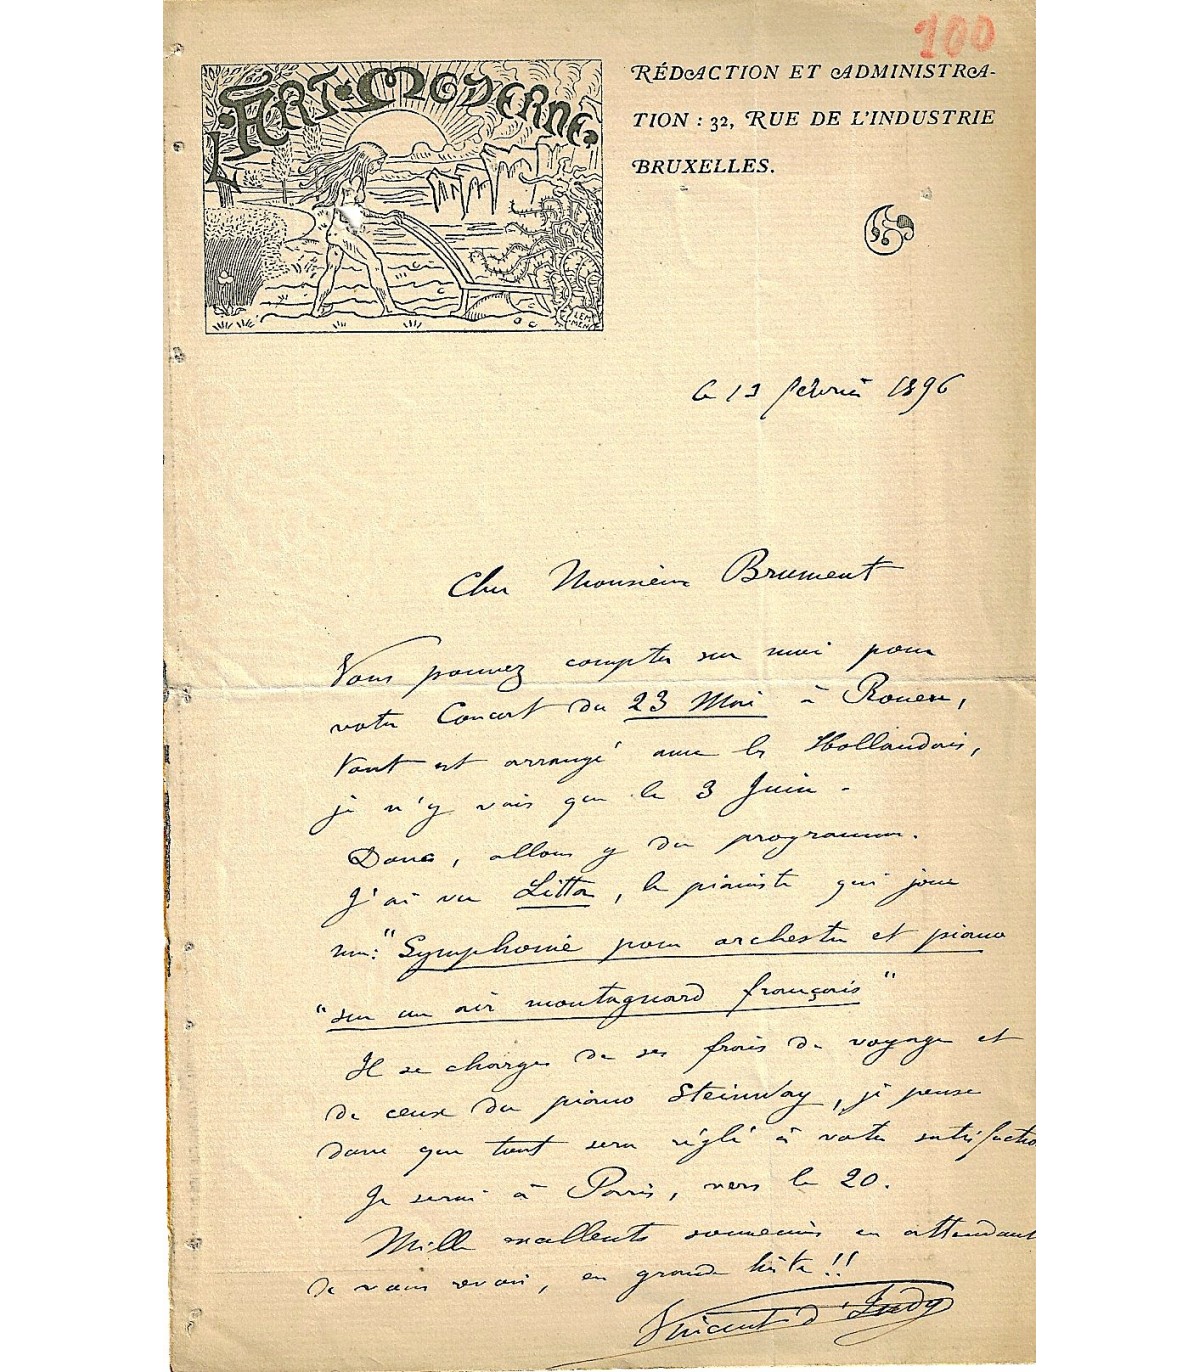 100
L'ART MODERNE
RÉDACTION ET ADMINISTRA-
TION : 32, RUE DE L'INDUSTRIE
BRUXELLES.
LEM
MEN
le 13 février 1896
Cher Monsieur Brument
Vous pouvez compter sur moi pour
votre Concert du 23 Mai à Rouen,
tout est arrangé avec les Hollandais,
je n'y vais que le 3 Juin -
Donc, allons y du programme.
J'ai vu Litta, le pianiste qui joue
ma: "Symphonie pour orchestre et piano
"sur un air montagnard français"
Il se charge de ses frais de voyage et
de ceux du piano Steinway, je pense
donc que tout sera réglé à votre satisfactio
Je serai à Paris, vers le 20.
Mille excellents souvenirs en attendant
de vous revoir, en grande hâte!!
Vincent d'Indy